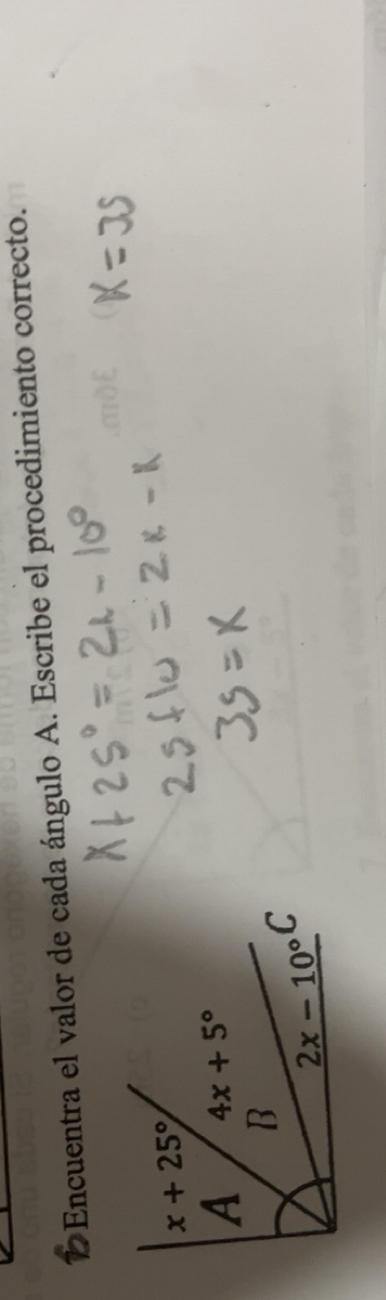 b Encuentra el valor de cada ángulo A. Escribe el procedimiento correcto.
x + 25° = 2x - 10°
x = 35
25 + 10 = 2x - x
35 = x
x + 25°
A
4x + 5°
B
2x − 10°
C